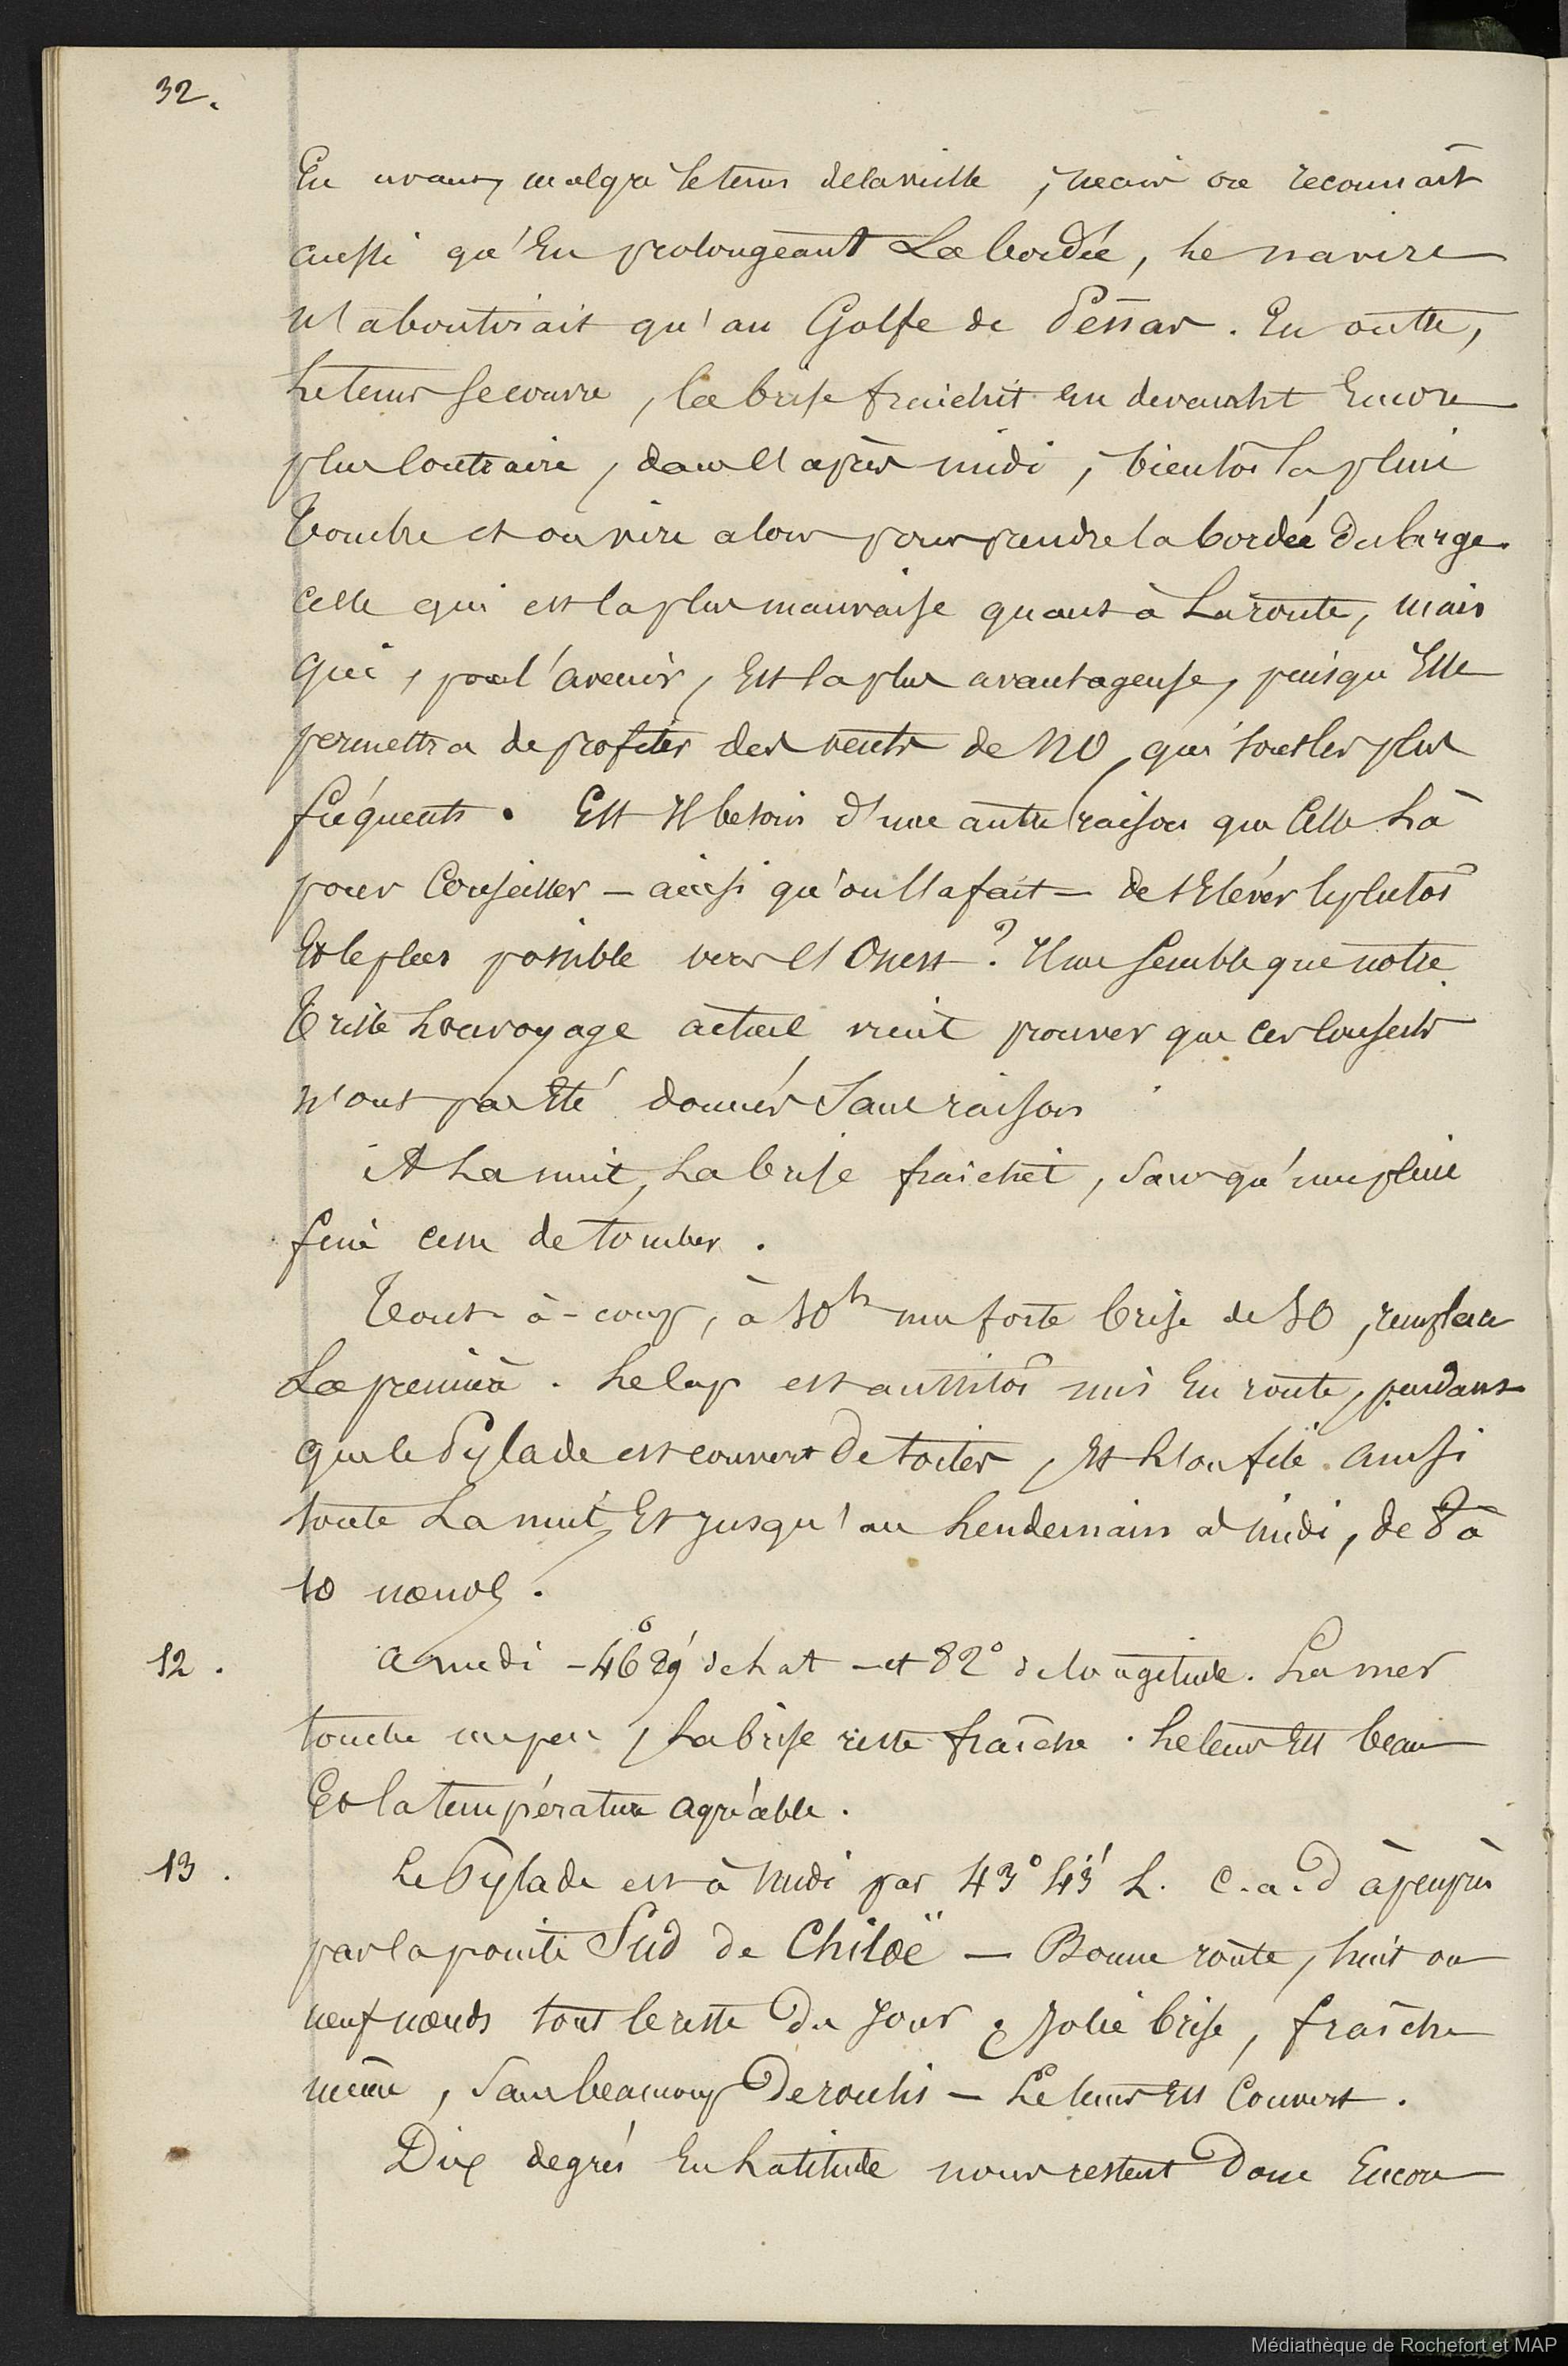 32.
En avant, malgré le tems de la veille, mais on reconnait
aussi qu'en prolongeant la bordée, le navire
n'aboutirait qu'au Golfe de Peñas. En outre,
le tems se couvre, la brise fraichit en devenant encore
plus contraire, dans l'après midi, bientôt la pluie
tombe et on vire alors pour prendre la bordée du large
celle qui est la plus mauvaise quant à la route, mais
qui, pour l'avenir, est la plus avantageuse, puisqu'elle
permettra de profiter des vents de NO, qui sont les plus
fréquents. Est il besoin d'une autre raison que celle là
pour conseiller - ainsi qu'on l'a fait - de s'élever le plutôt
et le plus possible vers l'Ouest ? Il me semble que notre
triste louvoyage actuel vient prouver que ces conseils
n'ont pas été donnés sans raison
A la nuit, la brise fraichit, sans qu'une pluie
fine cesse de tomber.
Tout-à-coup, à 10h une forte brise de SO, remplace
la première. Le cap est aussitôt mis en route, pendant
que le Pylade est couvert de toiles, et l'on file ainsi
toute la nuit et jusqu'au lendemain à midi, de 8 à
10 nœuds.
12. A midi - 46° 29' de Lat - et 82° de longitude. La mer
tombe un peu, la brise reste fraîche. Le tems est beau
et la température agréable.
13. Le Pylade est à midi par 43° 43' L. c.a.d à peu près
par la pointe Sud de Chiloë - Bonne route, huit ou
neuf nœuds tout le reste du jour & jolie brise, fraîche
même, sans beaucoup de roulis - Le tems est couvert.
Dix degrés en latitude nous restent donc encore
Médiathèque de Rochefort et MAP